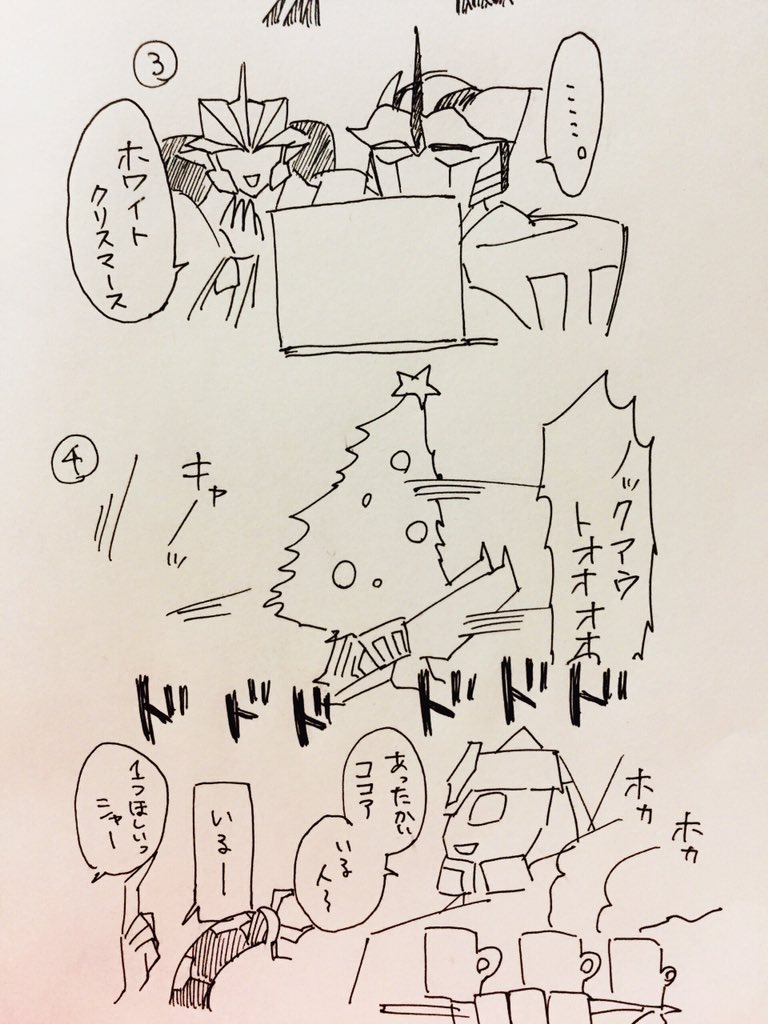 ③
……。
ホワイト
クリスマース
④
ノックアウ
トオオオオ
キャ
ーッ
ドドド ドドド
ホカ
ホカ
あったかい
ココア
いる
人〜
いるー
1つほしいっ
ニャー